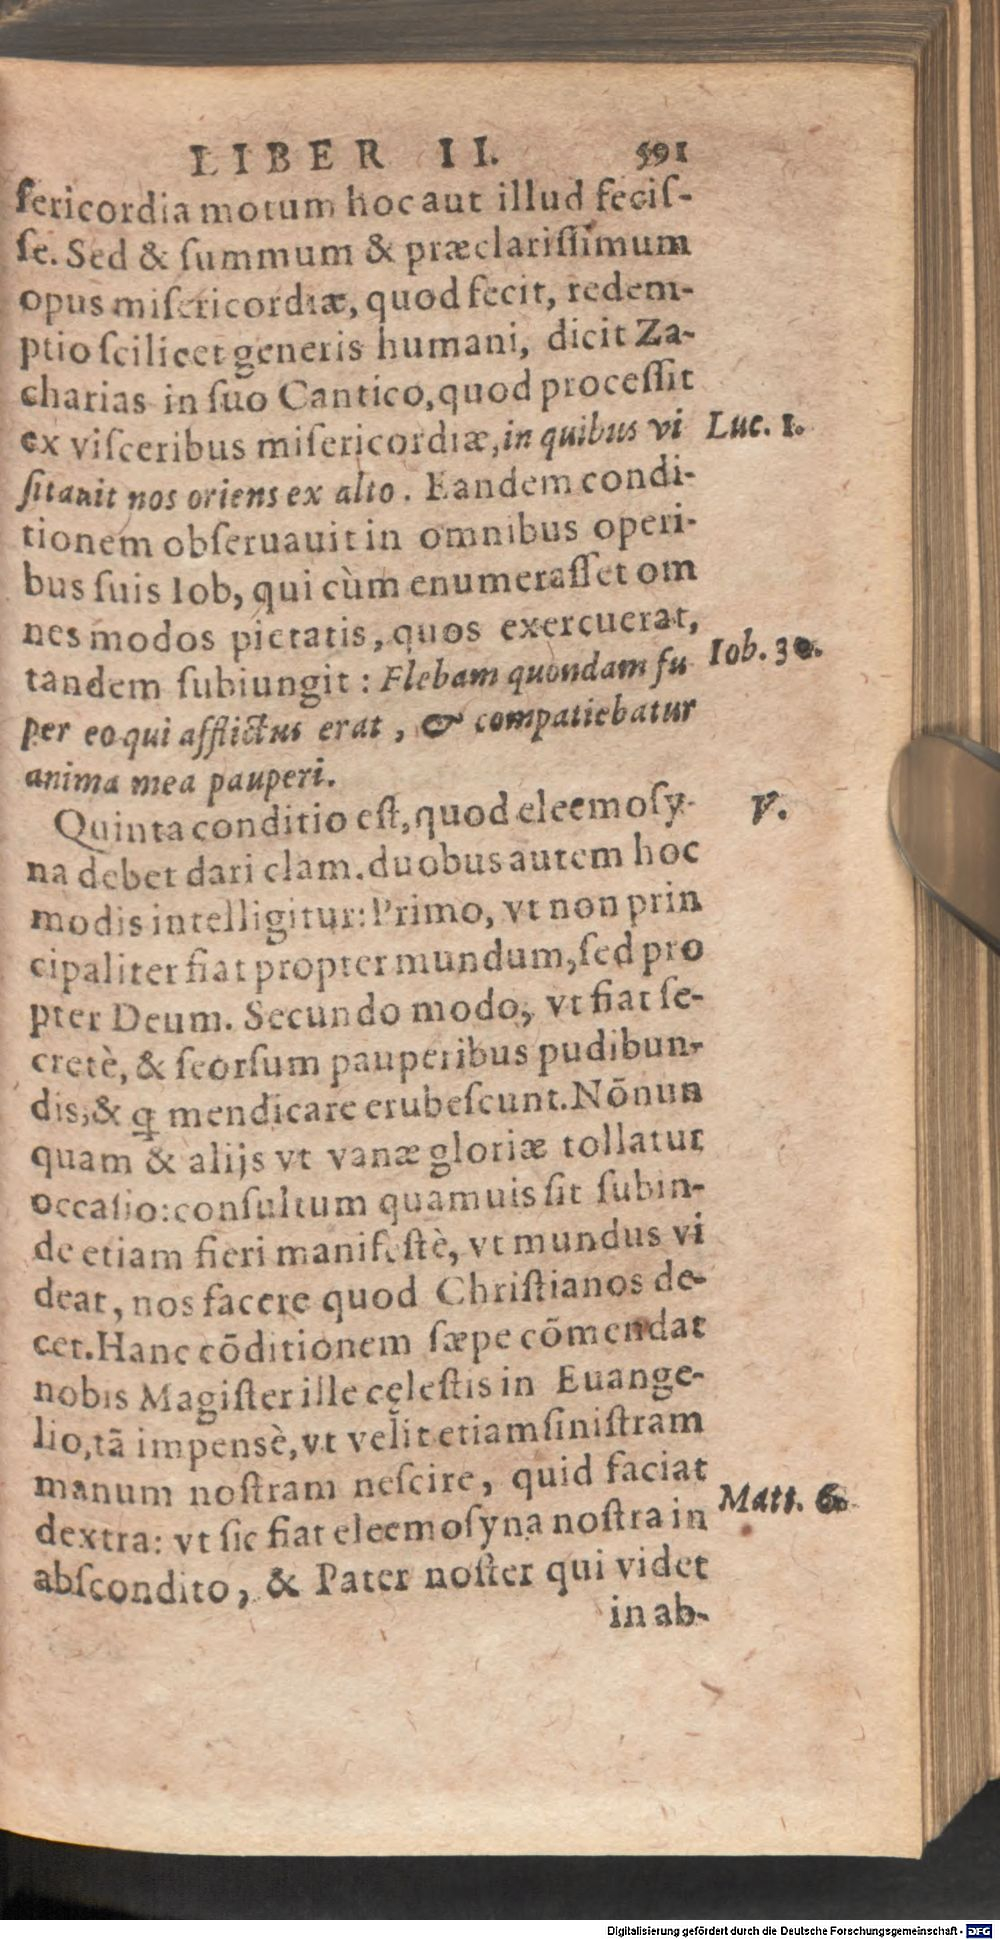 LIBER II. 591
ſericordia motum hoc aut illud feciſ-
ſe. Sed & ſummum & præclariſſimum
opus miſericordiæ, quod fecit, redem-
ptio ſcilicet generis humani, dicit Za-
charias in ſuo Cantico, quod proceſſit
ex viſceribus miſericordiæ, in quibus vi
Luc. 1.
ſitauit nos oriens ex alto. Eandem condi-
tionem obſeruauit in omnibus operi-
bus ſuis Iob, qui cùm enumeraſſet om
nes modos pietatis, quos exercuerat,
tandem ſubiungit: Flebam quondam ſu
Iob. 30.
per eo qui afflictus erat, & compatiebatur
anima mea pauperi.
Quinta conditio eſt, quod eleemoſy-
V.
na debet dari clam. duobus autem hoc
modis intelligitur: Primo, vt non prin
cipaliter fiat propter mundum, ſed pro
pter Deum. Secundo modo, vt fiat ſe-
cretè, & ſeorſum pauperibus pudibun-
dis, & ꝗ mendicare erubeſcunt. Nōnun
quam & alijs vt vanæ gloriæ tollatur
occaſio: conſultum quamuis ſit ſubin-
de etiam fieri manifeſtè, vt mundus vi
deat, nos facere quod Chriſtianos de-
cet. Hanc cōditionem ſæpe cōmendat
nobis Magiſter ille cęleſtis in Euange-
lio, tā impensè, vt velit etiam ſiniſtram
manum noſtram neſcire, quid faciat
Matt. 6.
dextra: vt ſic fiat eleemoſyna noſtra in
abſcondito, & Pater noſter qui videt
in ab-
Digitalisierung gefördert durch die Deutsche Forschungsgemeinschaft - DFG